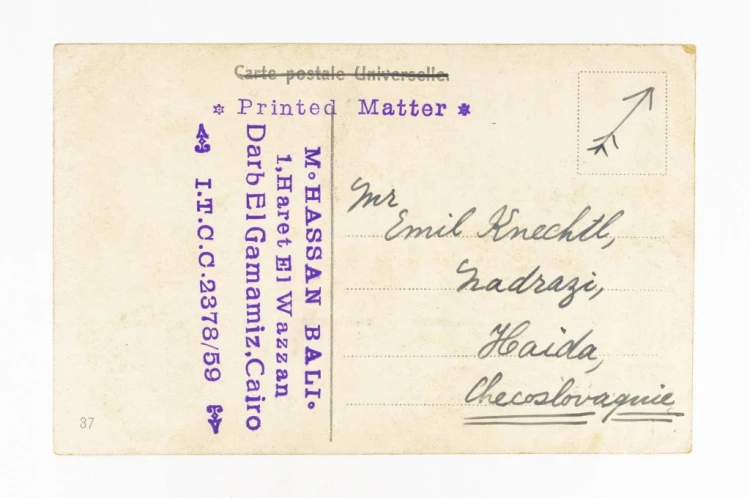 Carte postale Universelle.
* Printed Matter *
M. HASSAN BALI.
1, Haret El Wazzan
Darb El Gamamiz, Cairo
I.T.C.C. 2378/59
Mr
Emil Knechtl,
Nadrazi,
Haida,
Checoslovaquie
37